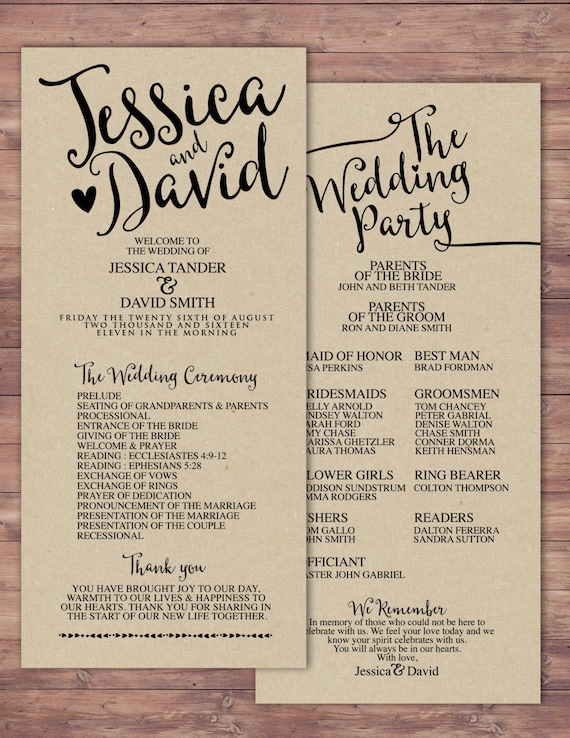 Jessica
and
David
WELCOME TO
THE WEDDING OF
JESSICA TANDER
&
DAVID SMITH
FRIDAY THE TWENTY SIXTH OF AUGUST
TWO THOUSAND AND SIXTEEN
ELEVEN IN THE MORNING
The Wedding Ceremony
PRELUDE
SEATING OF GRANDPARENTS & PARENTS
PROCESSIONAL
ENTRANCE OF THE BRIDE
GIVING OF THE BRIDE
WELCOME & PRAYER
READING : ECCLESIASTES 4:9-12
READING : EPHESIANS 5:28
EXCHANGE OF VOWS
EXCHANGE OF RINGS
PRAYER OF DEDICATION
PRONOUNCEMENT OF THE MARRIAGE
PRESENTATION OF THE MARRIAGE
PRESENTATION OF THE COUPLE
RECESSIONAL
Thank you
YOU HAVE BROUGHT JOY TO OUR DAY,
WARMTH TO OUR LIVES & HAPPINESS TO
OUR HEARTS. THANK YOU FOR SHARING IN
THE START OF OUR NEW LIFE TOGETHER.
The
Wedding
Party
PARENTS
OF THE BRIDE
JOHN AND BETH TANDER
PARENTS
OF THE GROOM
RON AND DIANE SMITH
MAID OF HONOR
SA PERKINS
BEST MAN
BRAD FORDMAN
RIDESMAIDS
ELLY ARNOLD
NDSEY WALTON
ARAH FORD
MY CHASE
ARISSA GHETZLER
AURA THOMAS
GROOMSMEN
TOM CHANCEY
PETER GABRIAL
DENISE WALTON
CHASE SMITH
CONNER DORMA
KEITH HENSMAN
LOWER GIRLS
DDISON SUNDSTRUM
MMA RODGERS
RING BEARER
COLTON THOMPSON
SHERS
OM GALLO
OHN SMITH
READERS
DALTON FERERRA
SANDRA SUTTON
FFICIANT
ASTER JOHN GABRIEL
We Remember
In memory of those who could not be here to
elebrate with us. We feel your love today and we
know your spirit celebrates with us.
You will always be in our hearts.
With love,
Jessica & David